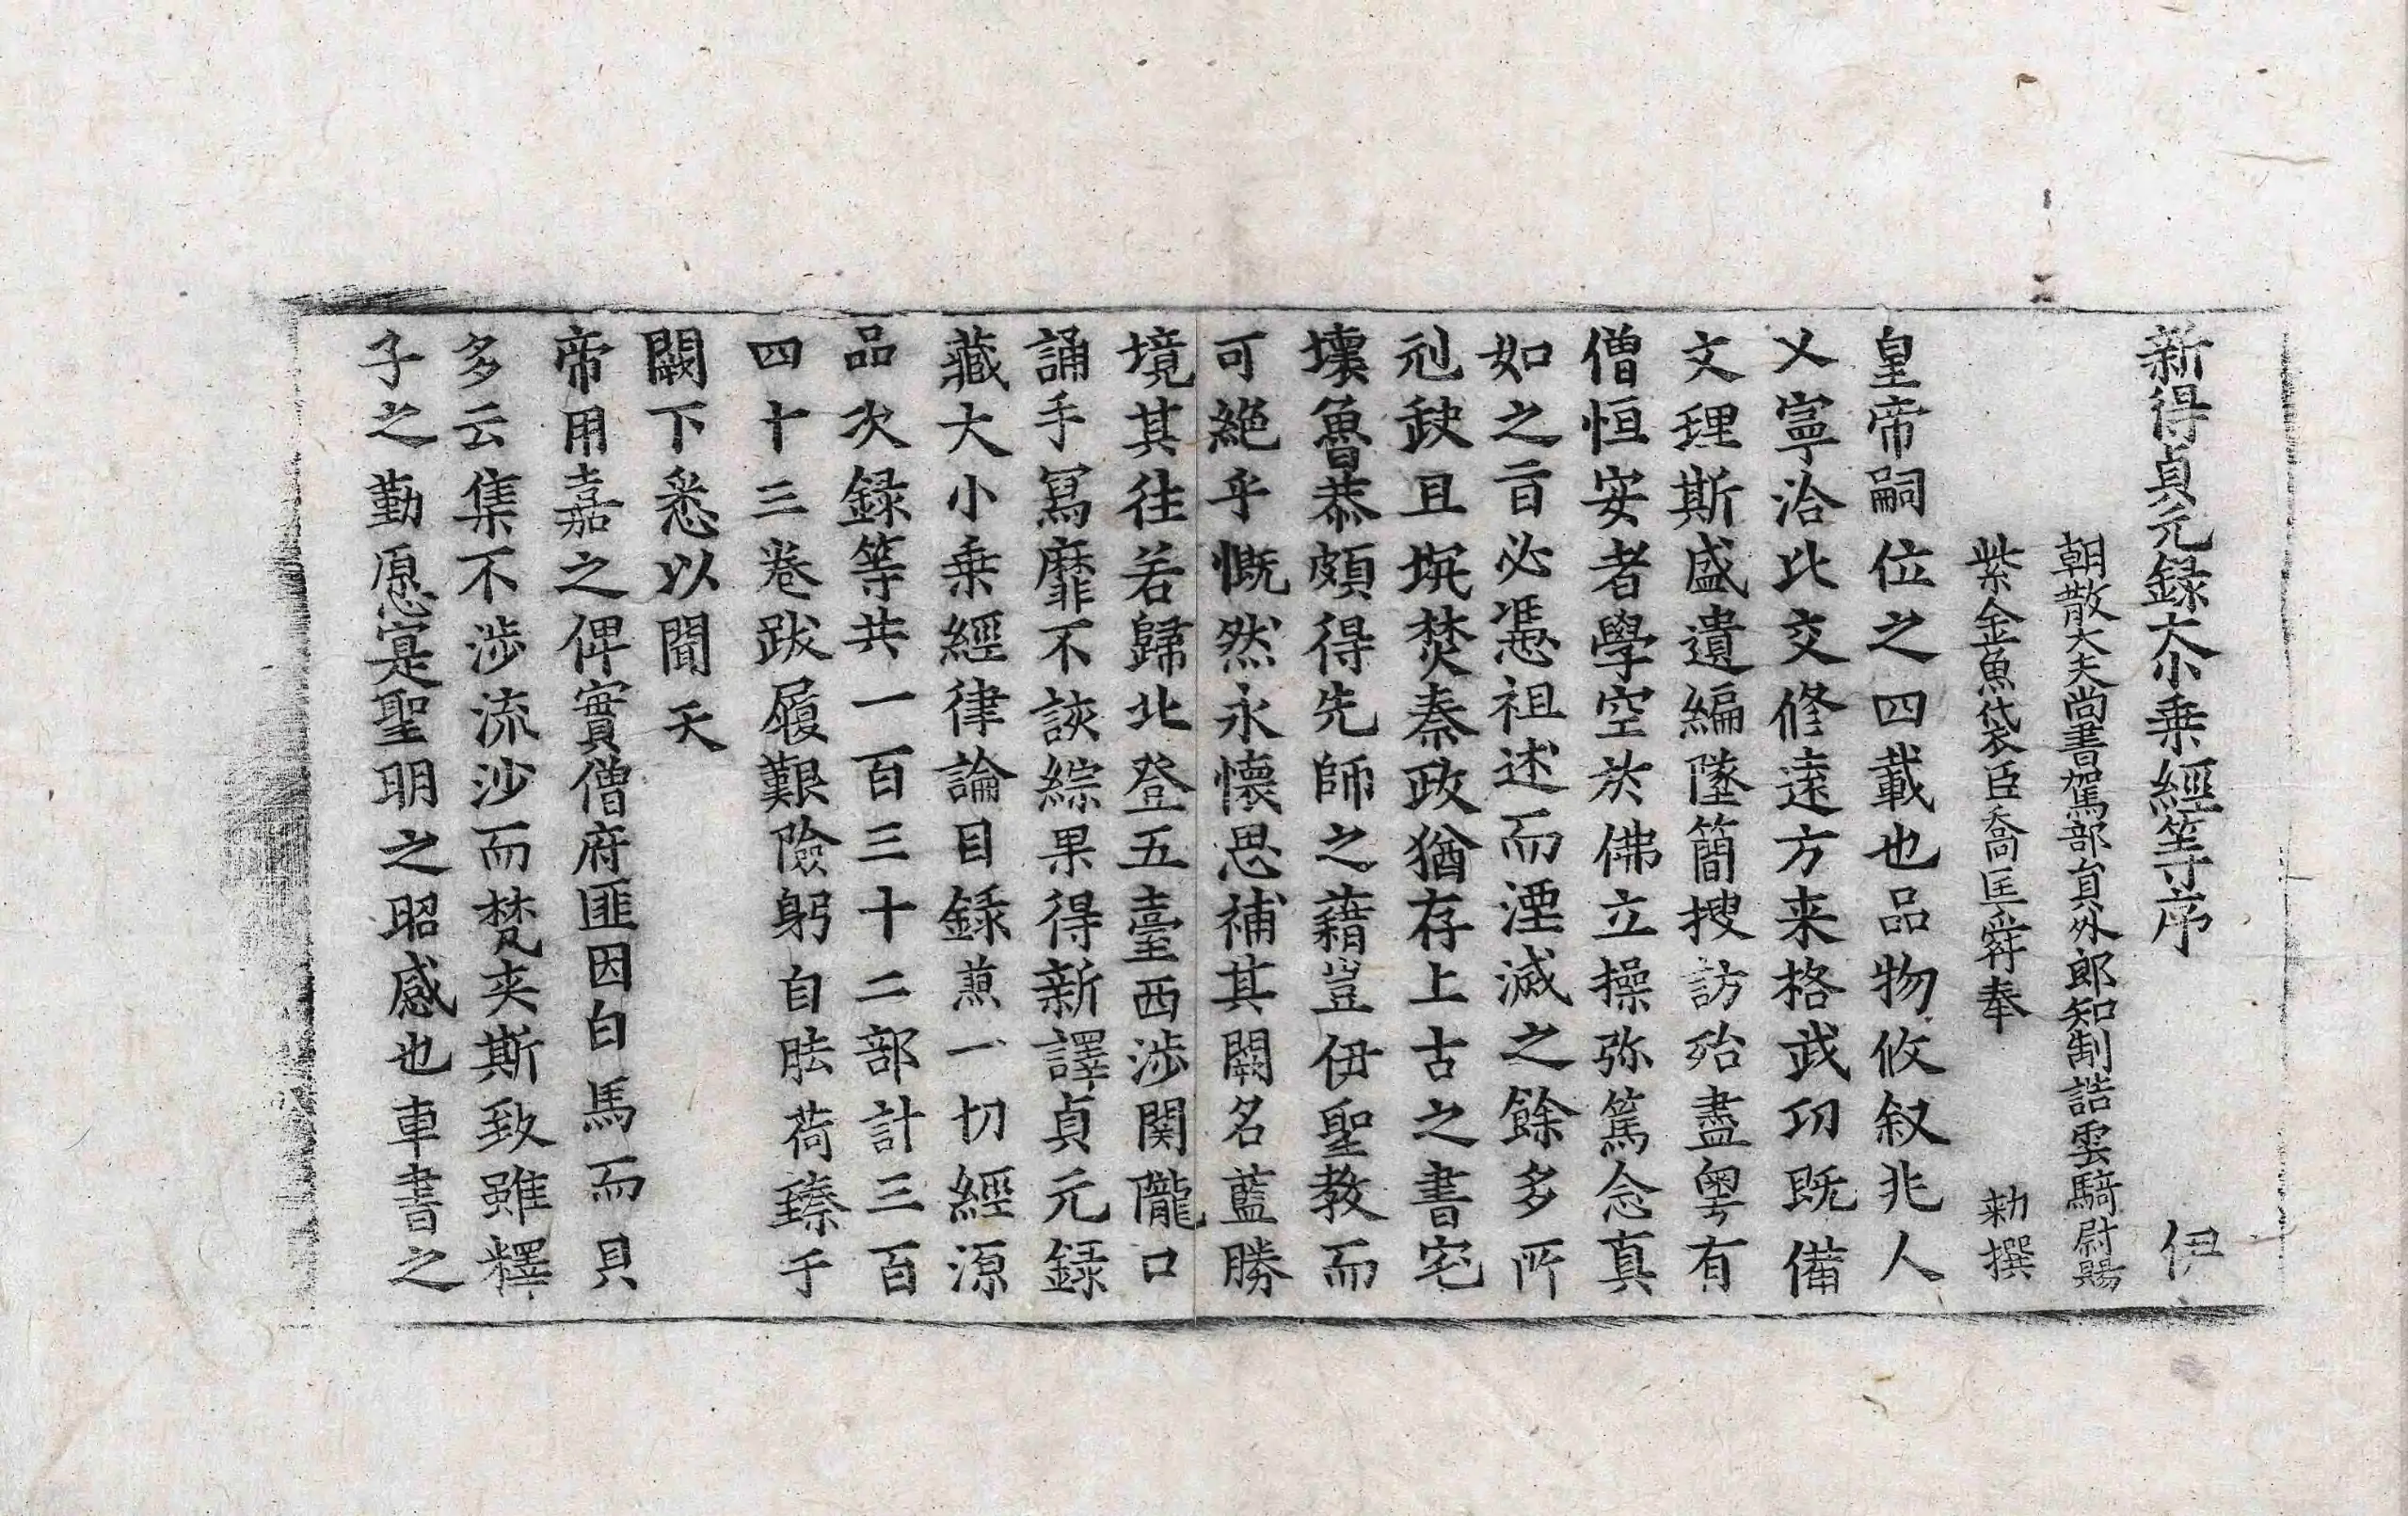 新得貞元録大小乗經等序 伊
朝散大夫尚書駕部貟外郎知制誥雲騎尉賜
紫金魚袋臣喬匡舜奉 勑撰
皇帝嗣位之四載也品物攸叙兆人
乂寧洽比交修遠方来格武功既備
文理斯盛遺編墜簡搜訪殆盡粤有
僧恒安者學空於佛立操弥篤念真
如之言必憑祖述而湮滅之餘多所
刓缺且坑焚秦政猶存上古之書宅
壊魯恭頗得先師之藉豈伊聖教而
可絶乎慨然永懷思補其闕名藍勝
境其往若歸北登五臺西渉関隴口
誦手冩靡不該綜果得新譯貞元録
藏大小乗經律論目録兼一切經源
品次録等共一百三十二部計三百
四十三卷跋履艱險躬自胠荷臻于
闕下悉以聞天
帝用嘉之俾實僧府匪因白馬而貝
多云集不渉流沙而梵夾斯致雖釋
子之勤愿寔聖明之昭感也車書之